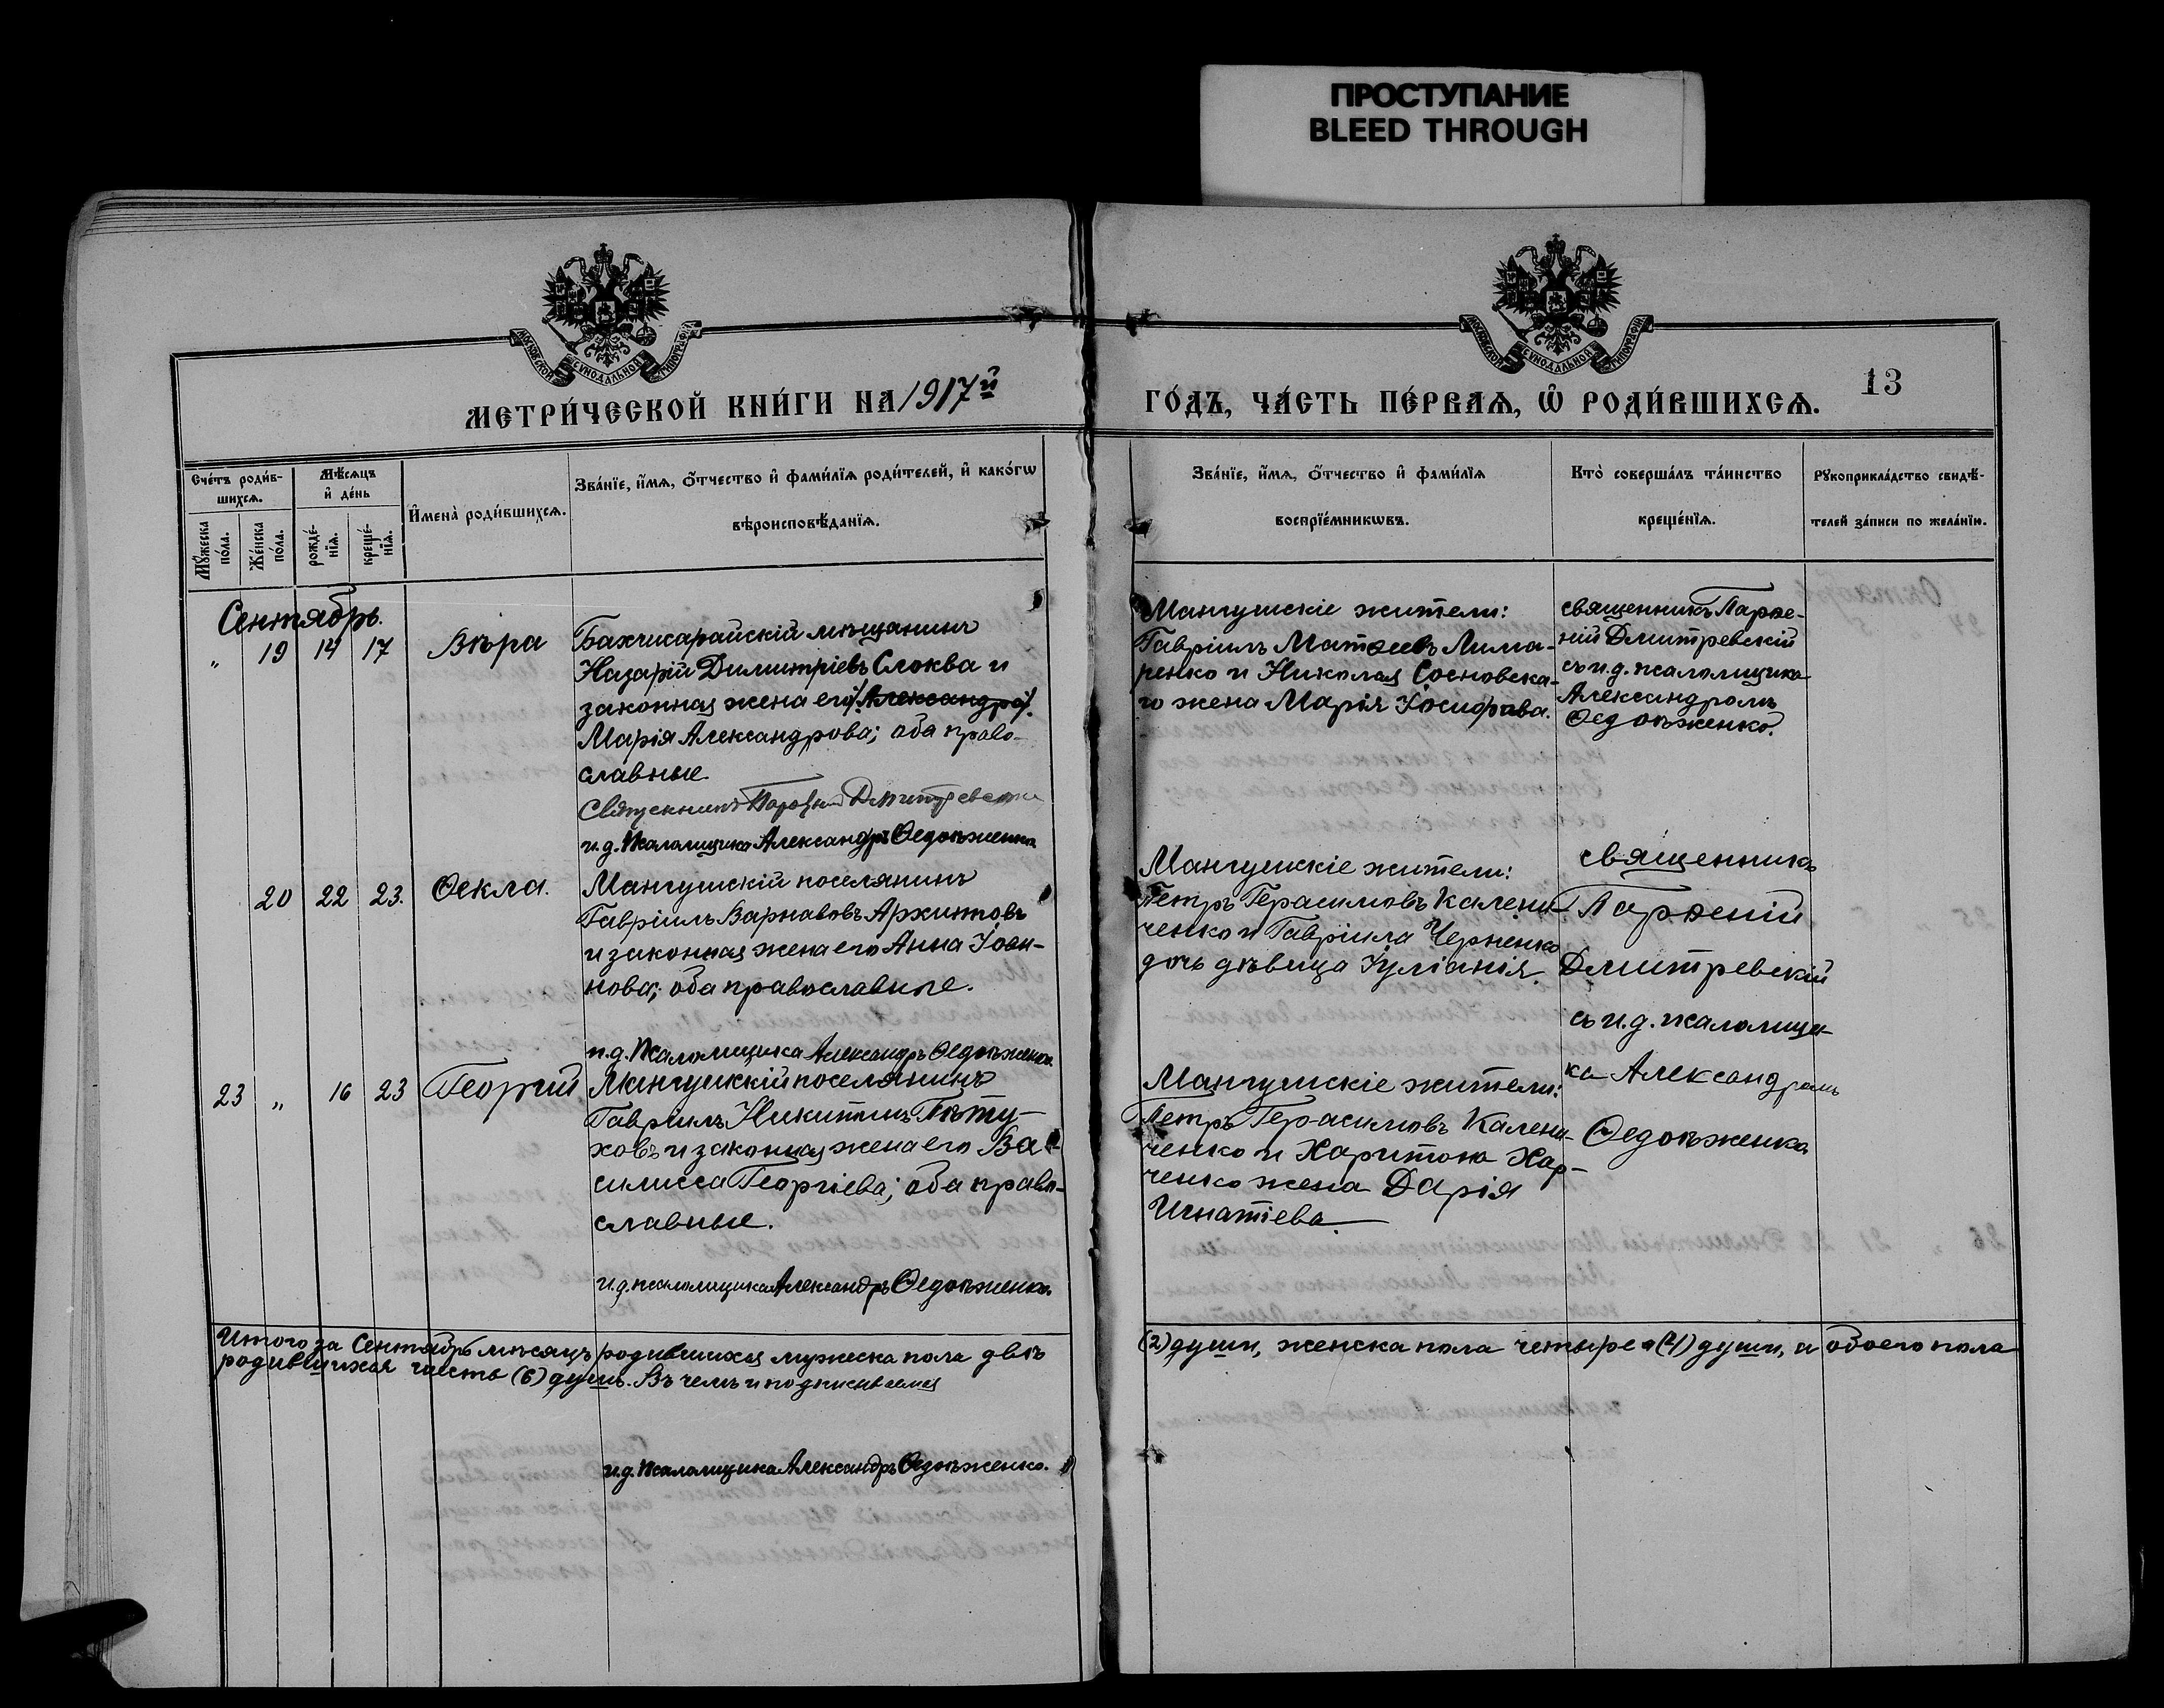 ПРОСТУПАНИЕ
BLEED THROUGH
МОСКОВСКОЙ СѴНОДАЛЬНОЙ ТИПОГРАФІИ
МОСКОВСКОЙ СѴНОДАЛЬНОЙ ТИПОГРАФІИ
МЕТРИ́ЧЕСКОЙ КНИ́ГИ НА 1917й
ГО́ДЪ, ЧА́СТЬ ПЕ́РВАѦ, Ѡ҆ РОДИ́ВШИХСѦ.
13
Сче́тъ роди́в-
шихсѧ.
Мѣ́сѧцъ
и҆ де́нь
Мꙋ́жеска
по́ла.
Же́нска
по́ла.
рожде́-
нїѧ.
креще́-
нїѧ.
И҆мена̀ роди́вшихсѧ.
Зва́нїе, и҆́мѧ, ѻ҆́тчество и҆ фами́лїѧ роди́телей, и҆ како́гѡ
вѣроисповѣ́данїѧ.
Зва́нїе, и҆́мѧ, ѻ҆́тчество и҆ фами́лїѧ
воспрїе́мникѡвъ.
Кто̀ соверша́лъ та́инство
креще́нїѧ.
Рꙋкоприкла́дство свидѣ́-
телей за́писи по жела́нїю.
Сентябрь.
" 19 14 17 Вѣра
Бахчисарайскій мѣщанинъ
Назарій Димитріевъ Слоква и
законная жена его Александра
Марія Александрова; оба право-
славные.
Священникъ Парѳеній Дмитревскій
и.д. псаломщика Александръ Ѳедовъженко
Мангушскіе жители:
Гавріилъ Матѳеевъ Лима-
ренко и Николая Сосновска-
го жена Марія Іосифова.
священникъ Парѳе-
ній Дмитревскій
съ и.д. псаломщика
Александромъ
Ѳедовъженко.
20 22 23. Ѳекла.
Мангушскій поселянинъ
Гавріилъ Варнавовъ Архиповъ
и законная жена его Анна Іоан-
нова; оба православные.
и.д. псаломщика Александръ Ѳедовъженко.
Мангушскіе жители:
Петръ Герасимовъ Калени-
ченко и Гавріила Черненко
дочь дѣвица Іуліанія.
священникъ
Парѳеній
Дмитревскій
съ и.д. псаломщи-
ка Александромъ
Ѳедовъженко
23 " 16 23 Георгій
Мангушскій поселянинъ
Гавріилъ Никитинъ Пѣту-
ховъ и законная жена его Ва-
силисса Георгіева; оба право-
славные.
и.д. псаломщика Александръ Ѳедовъженко.
Мангушскіе жители:
Петръ Герасимовъ Калени-
ченко и Харитона Хар-
ченко жена Дарія
Игнатіева.
Итого за Сентябрь мѣсяцъ родившихся мужеска пола двѣ (2) души, женска пола четыре (4) души, а обоего пола
родившихся шесть (6) душъ. Въ чемъ и подписываемся
и.д. псаломщика Александръ Ѳедовъженко.